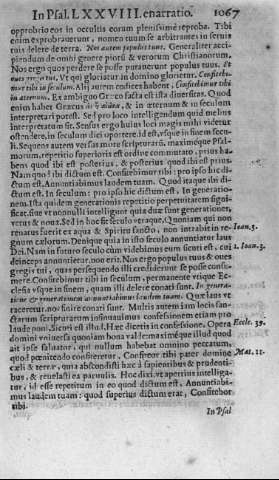 In Psal. LXXVIII. enarratio. 1067
opprobrio eos in occultis eorum plenissimè reproba. Tibi
enim exprobrauerunt, nomen tuum se arbitrantes in seruis
tuis delere de terra. Nos autem populus tuus. Generaliter acci-
piendum de omni genere piorū & verorum Christianorum,
Nos ergo quos perdere se posse putauerunt populus tuus, Et
oues gregis tui, Vt qui gloriatur in domino glorietur. Confitebi-
mur tibi in seculum. Alij autem codices habent, Confitebimur tibi
in æternum. Ex ambiguo Græco facta est ista diuersitas. Quod
enim habet Græcus & in æternum & in seculum
interpretari potest. Sed pro loco intelligendum quid melius
interpretatum sit. Sensus ergo huius loci magis mihi videtur
ostendere, in seculum dici oportere, id est, vsque in finem secu-
li. Sequens autem versus more scripturarū, maximéque Psal-
morum, repetitio superioris est ordine commutato, prius ha-
bens quod ibi est posterius, & posterius quod ibi est prius.
Nam quod ibi dictum est, Confitebimur tibi: pro ipso hîc di-
ctum est, Annuntiabimus laudem tuam. Quod itaque ibi di-
ctum est, In seculum: pro ipso hîc dictum est, In generatio-
nem. Ista quidem generationis repetitio perpetuitatem signi-
ficat, siue vt nonnulli intelligunt quia duæ sunt generationes,
vetus & noua. Sed in hoc seculo vtraque. Quoniam qui non
renatus fuerit ex aqua & Spiritu sancto, non intrabit in re- Ioan.3.
gnum cælorum. Denique quia in isto seculo annuntiatur laus
Dei. Nam in futuro seculo cùm videbimus eum sicuti est, cui 1. Ioan.3.
deinceps annuntietur, non erit. Nos ergo populus tuus & oues
gregis tui, quas persequendo illi crediderunt se posse consu-
mere, Confitebimur tibi in seculum, permanente vtique Ec-
clesia vsque in finem, quam illi delere conati sunt. In genera-
tione & generationem annuntiabimus laudem tuam. Quæ laus vt
taceretur, nos finire conati sunt. Multis autem iam locis san-
ctarum scripturarum insinuauimus confessionem etiam pro
laude poni, Sicuti est illud, Hæc dicetis in confessione, Opera Eccle. 39.
domini vniuersa quoniam bona valde: maximé que illud quod
ait ipse saluator, qui nullum habebat omnino peccatum,
quod pœnitendo confiteretur, Confiteor tibi pater domine Mat. 11.
cæli & terræ, quia abscondisti hæc à sapientibus & prudenti-
bus, & reuelasti ea paruulis. Hoc dixi, vt apertius intelliga-
tur, id esse repetitum in eo quod dictum est, Annuntiabi-
mus laudem tuam: quod superius dictum erat, Confitebor
tibi.
In Psal